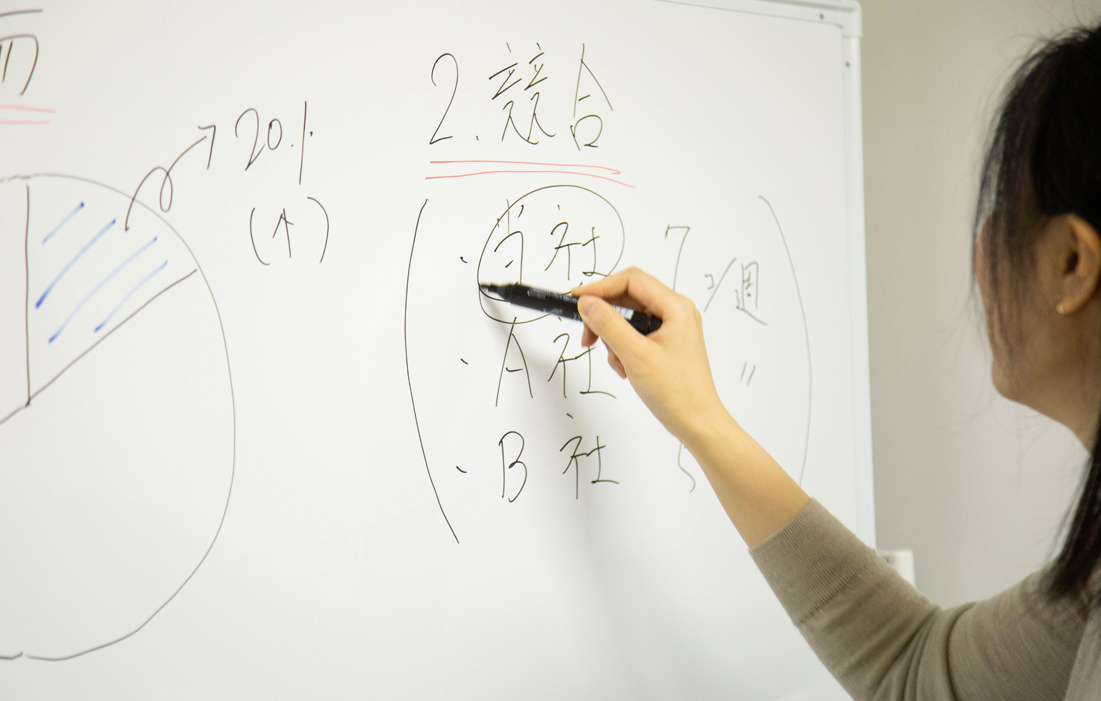 20%
(↑)
2. 競合
・当社 7コ/週
・A社 〃
・B社